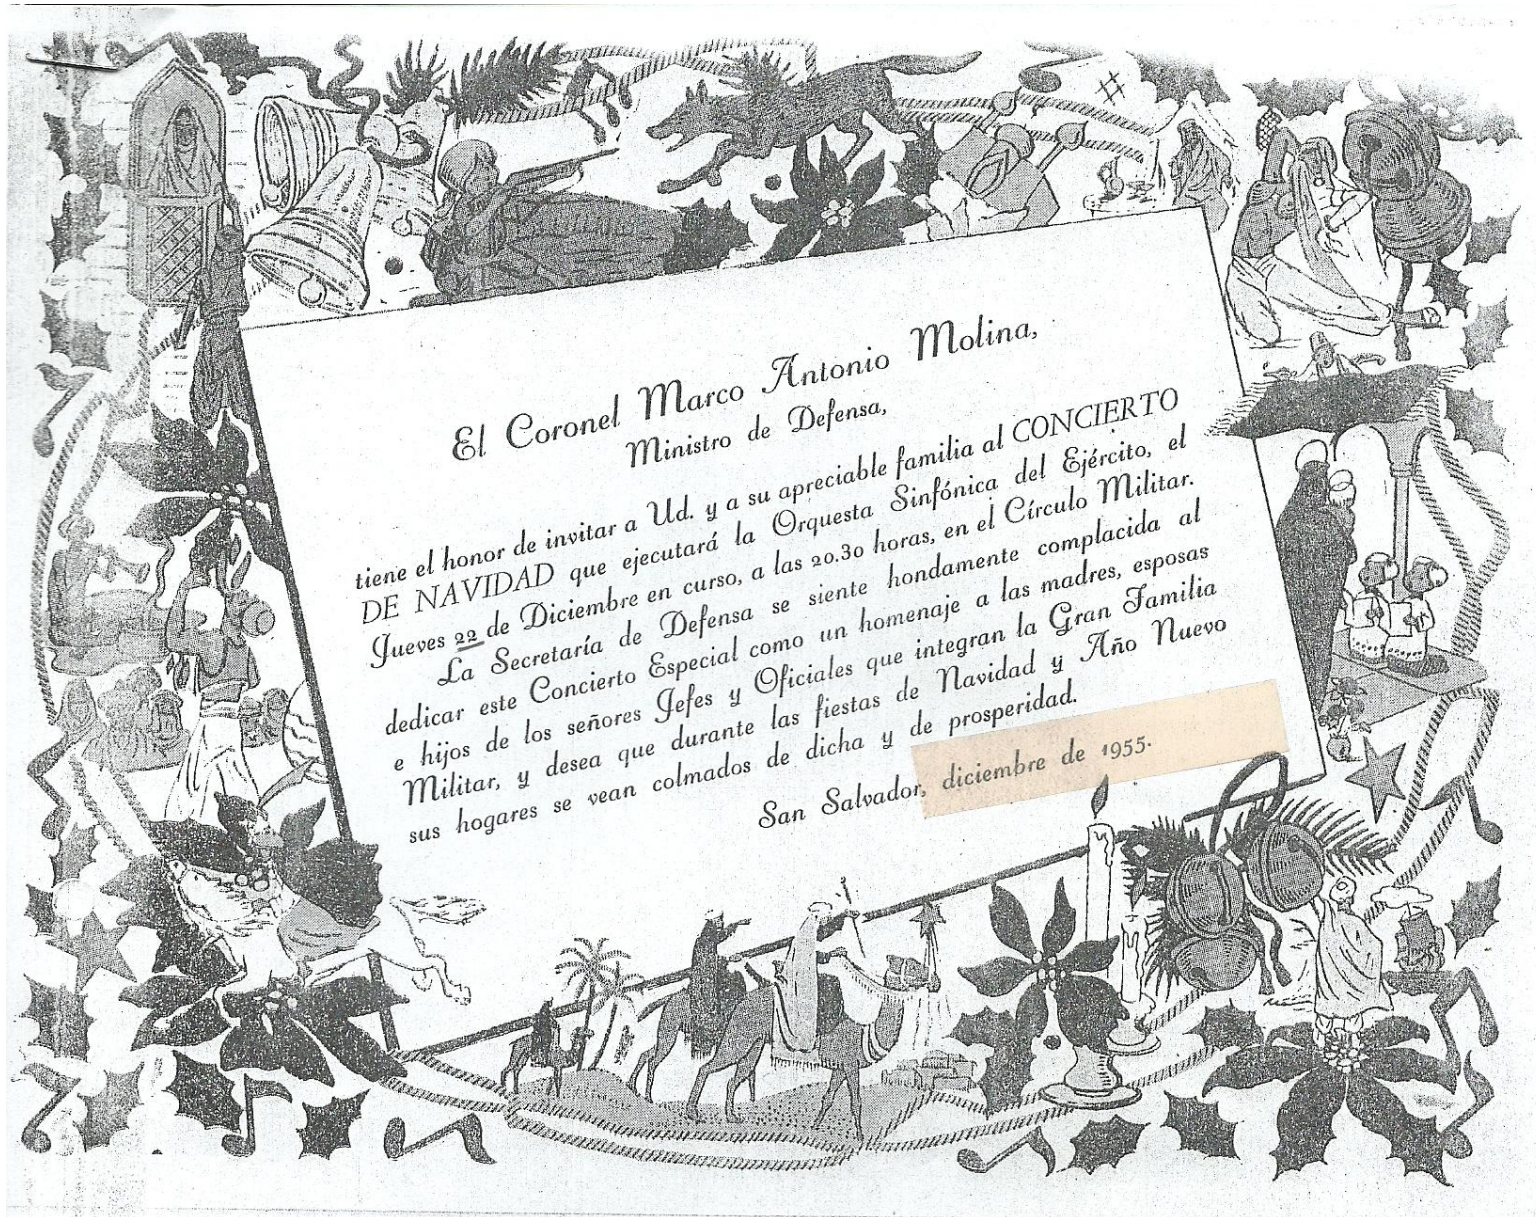 El Coronel Marco Antonio Molina,
Ministro de Defensa,
tiene el honor de invitar a Ud. y a su apreciable familia al CONCIERTO
DE NAVIDAD que ejecutará la Orquesta Sinfónica del Ejército, el
Jueves 22 de Diciembre en curso, a las 20.30 horas, en el Círculo Militar.
La Secretaría de Defensa se siente hondamente complacida al
dedicar este Concierto Especial como un homenaje a las madres, esposas
e hijos de los señores Jefes y Oficiales que integran la Gran Familia
Militar, y desea que durante las fiestas de Navidad y Año Nuevo
sus hogares se vean colmados de dicha y de prosperidad.
San Salvador, diciembre de 1955.